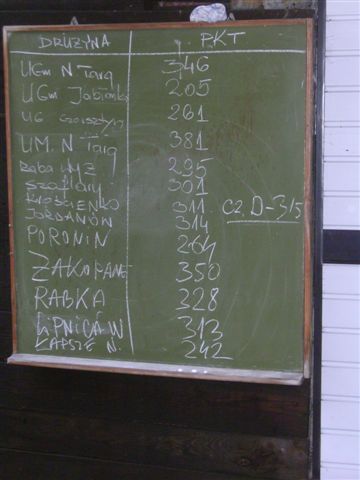 DRUŻYNA PKT
UGm N Targ 346
UGm Jabłonka 205
UG Czorsztyn 261
UM. N Targ 381
Raba WYŻ 295
Szaflary 301
KROŚCIENKO 311 CZ. D-315
JORDANÓW 314
PORONIN 264
ZAKOPANE 350
RABKA 328
LIPNICA W 313
ŁAPSZE N. 242